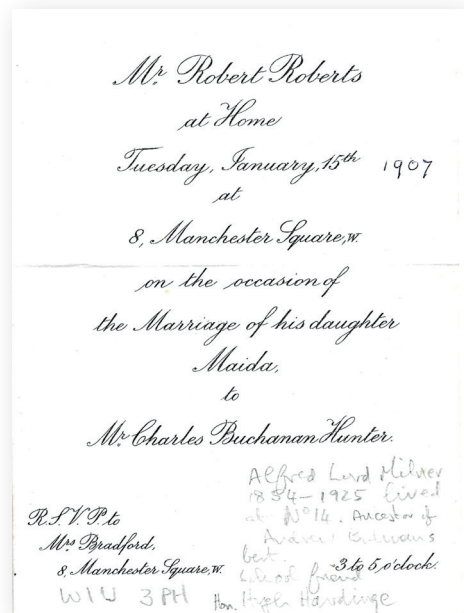 Mr. Robert Roberts
at Home
Tuesday, January, 15th 1907
at
8, Manchester Square, W.
on the occasion of
the Marriage of his daughter
Maida,
to
Mr. Charles Buchanan Hunter.
Alfred Lord Milner
1854-1925 lived
at No 14. Ancestor of
Andrew
best
school friend
Hon. Hugh Hardinge
R.S.V.P. to
Mrs. Bradford,
8, Manchester Square, W.
3 to 5 o'clock.
W1U 3PH